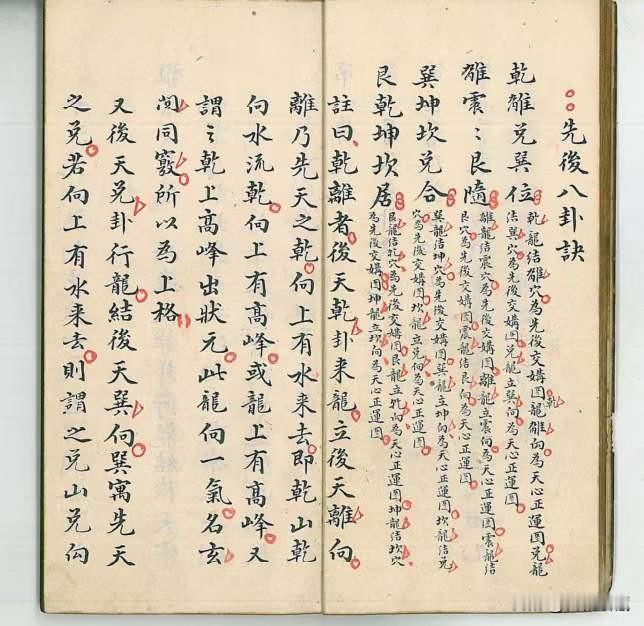 先後八卦訣
乾離兌巽位
乾龍結離穴為先後交媾图乾龍離向為天心正運图兌龍
结巽穴為先後交媾图兌龍立巽向為天心正運图
離震〻艮隨
離龍結震穴為先後交媾图離龍立震向為天心正運图震龍结
艮穴為先後交媾图震龍结艮向為天心正運图
巽坤坎兌合
巽龍结坤穴為先後交媾图巽龍立坤向為天心正運图坎龍结兌
穴為先後交媾图坎龍立兌向為天心正運图
艮乾坤坎居
艮龍结乹穴為先後交媾图艮龍立乹向為天心正運图坤龍结坎穴
為先後交媾图坤龍立坎向為天心正運图
註曰乾離者後天乾卦来龍立後天離向
離乃先天之乾向上有水来去即乾山乾
向水流乾向上有高峰或龍上有高峰又
謂〻乾上高峰出狀元此龍向一氣名玄
関同竅所以為上格
又後天兌卦行龍結後天巽向巽寓先天
之兌若向上有水来去則謂之兌山兌向